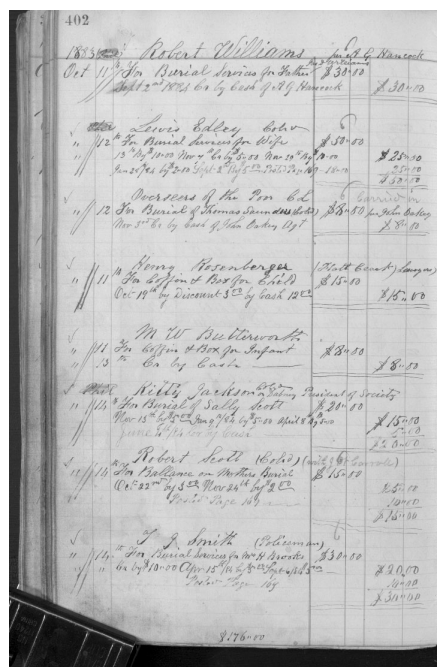 402
1883 Robert Williams for A G Hancock
Oct 11th For Burial Services for Father $30.00
Sept 2nd 1884 Cr by Cash of A G Hancock $30.00
Lewis Edley Cold
" 12th For Burial Services for Wife $50.00
13th By $10.00 Nov 7 Cr by $5.00 Nov 20th By $10.00 $25.00
25.00
$50.00
Overseers of the Poor C.L. Carried in
" 12 For Burial of Thomas Saunders (Cold) $8.00 for John Oakey
Nov 3rd Cr by Cash of John Oakey Agt $8.00
Henry Rosenberger (Hatt Court) (Lawyers)
" 11th For Coffin & Box for Child $15.00
Oct 19th by Discount 3.00 by Cash 12.00 $15.00
M W Butterworth
" 11 For Coffin & Box for Infant $8.00
" 13th Cr by Cash $8.00
Kitty Jackson President of Society
" 14th For Burial of Sally Scott $20.00
Nov 15th by $5.00 Jan 2nd /84 by $5.00 April 8th By 5.00 $15.00
5.00
$20.00
Robert Scott (Cold)
" 14th For Ballance on Mothers Burial $15.00
Oct 22nd by 3.00 Nov 24th by 2.00 $5.00
Posted Page 169 10.00
$15.00
T J Smith (Policeman)
" 14th For Burial Services for Mr H Brooke $30.00
Cr by $10.00 Apr 15th /84 by Sept $20.00
Posted Page 169 10.00
$30.00
$176.00